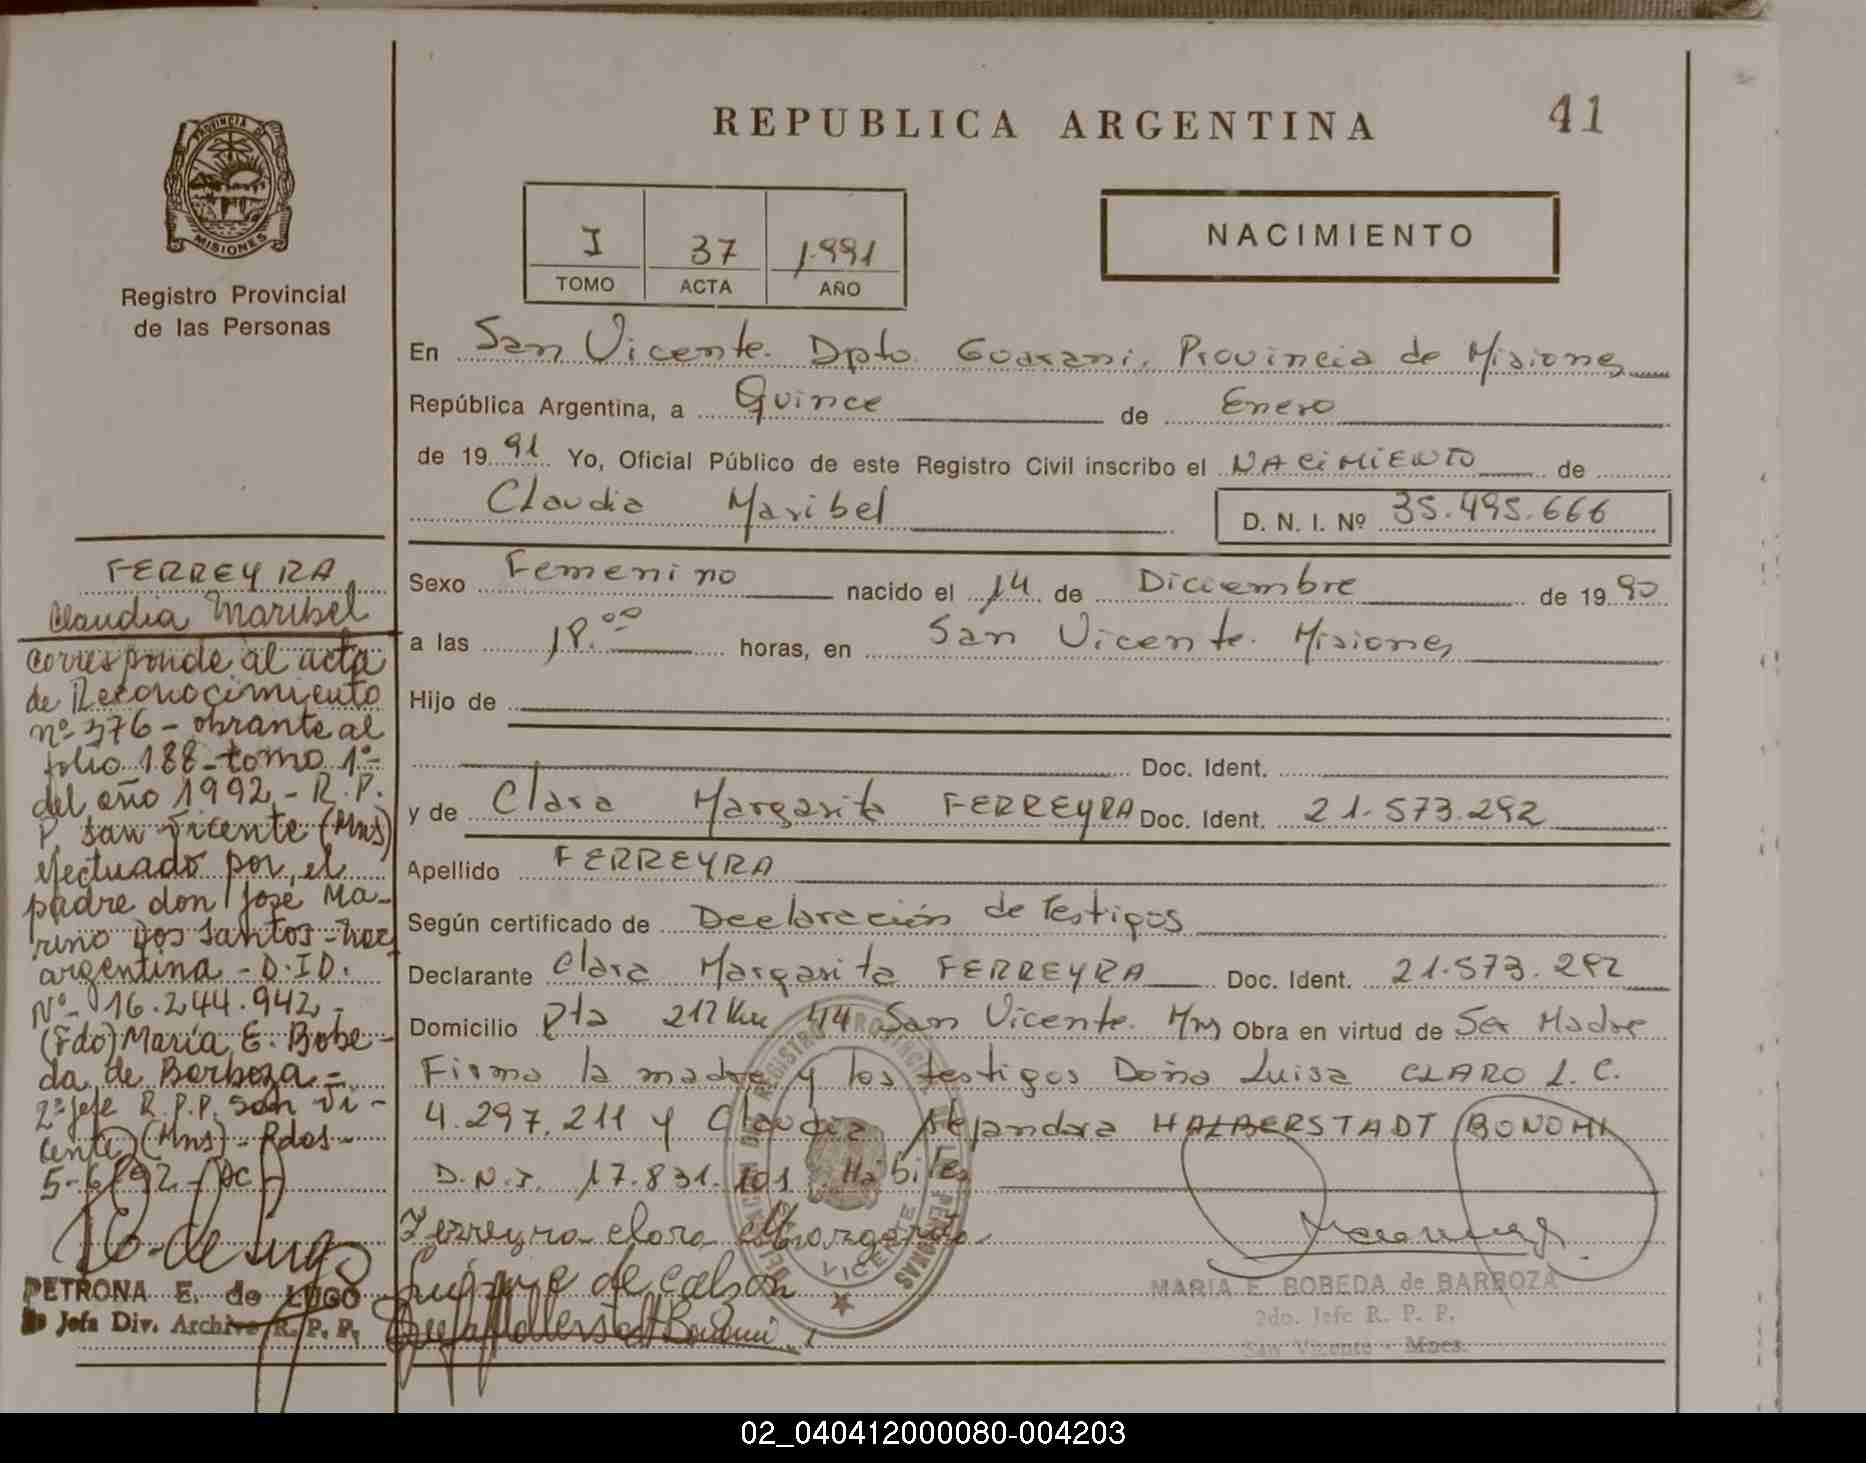 REPUBLICA ARGENTINA
41
PROVINCIA DE
MISIONES
Registro Provincial
de las Personas
I 37 1.991
TOMO ACTA AÑO
NACIMIENTO
En San Vicente. Dpto. Guarani. Provincia de Misiones
República Argentina, a Quince de Enero
de 19 91 Yo, Oficial Público de este Registro Civil inscribo el NACIMIENTO de
Claudia Maribel D. N. I. Nº 35.495.666
Sexo Femenino nacido el 14 de Diciembre de 19 90
a las 18.00 horas, en San Vicente. Misiones
Hijo de
Doc. Ident.
y de Clara Margarita FERREYRA Doc. Ident. 21.573.292
Apellido FERREYRA
Según certificado de Declaración de Testigos
Declarante Clara Margarita FERREYRA Doc. Ident. 21.573.292
Domicilio Rta 212 Km 44 San Vicente. Mns Obra en virtud de Ser Madre
Firma la madre y los testigos Doña Luisa CLARO L.C.
4.297.211 y Claudia Alejandra HALBERSTADT BONOMI
D.N.I. 17.831.101 Hábiles
Ferreyra clara Margarita
MARIA E. BOBEDA de BARBOZA
2do. Jefe R. P. P.
San Vicente - Mnes.
FERREYRA
Claudia Maribel
corresponde al acta
de Reconocimiento
nº 376 - obrante al
folio 188 - tomo 1º -
del año 1992 - R.P.
P. San Vicente (Mns)
efectuado por el
padre don José Ma-
rino Dos Santos - nac
argentina - D.I.D.
Nº 16.244.942 -
(Fdo) María E. Bobe-
da de Barboza -
2º Jefe R.P.P. San Vi-
cente (Mns) - Pdas -
5-6-92 -
PETRONA E. de LUGO
Jefa Div. Archivo R. P. P.
02_040412000080-004203